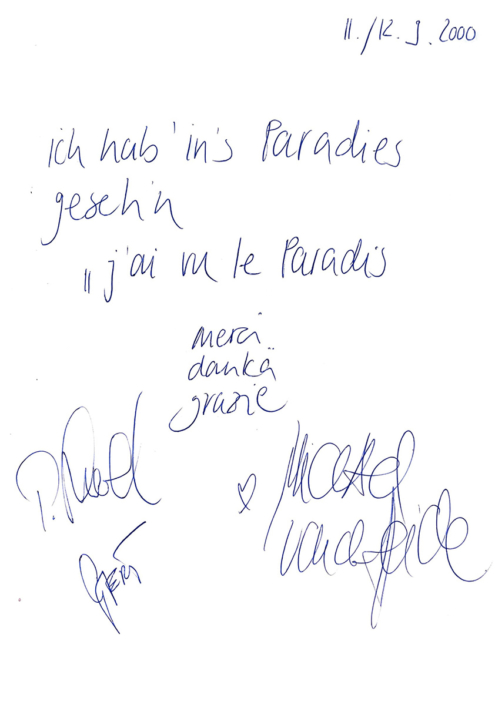 11./12. 9. 2000
ich hab' in's Paradies
geseh'n
„ j'ai vu le Paradis
merci
dankä
grazie